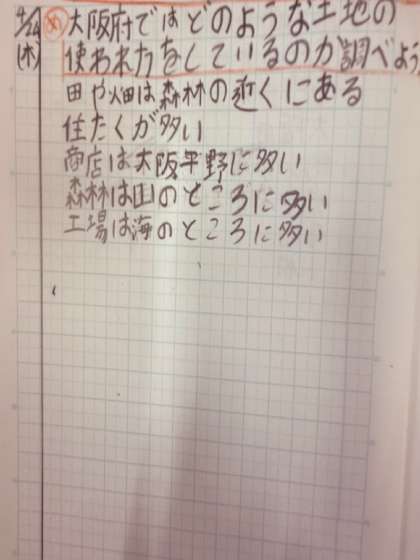 4/24 め 大阪府ではどのような土地の
(木) 使われ方をしているのか調べよう
田や畑は森林の近くにある
住たくが多い
商店は大阪平野に多い
森林は山のところに多い
工場は海のところに多い